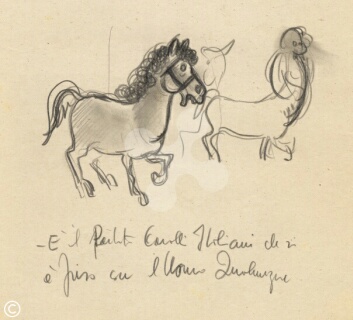 - E' il Partito Cavalli Italiani che si
è fuso con l'Uomo Qualunque
©